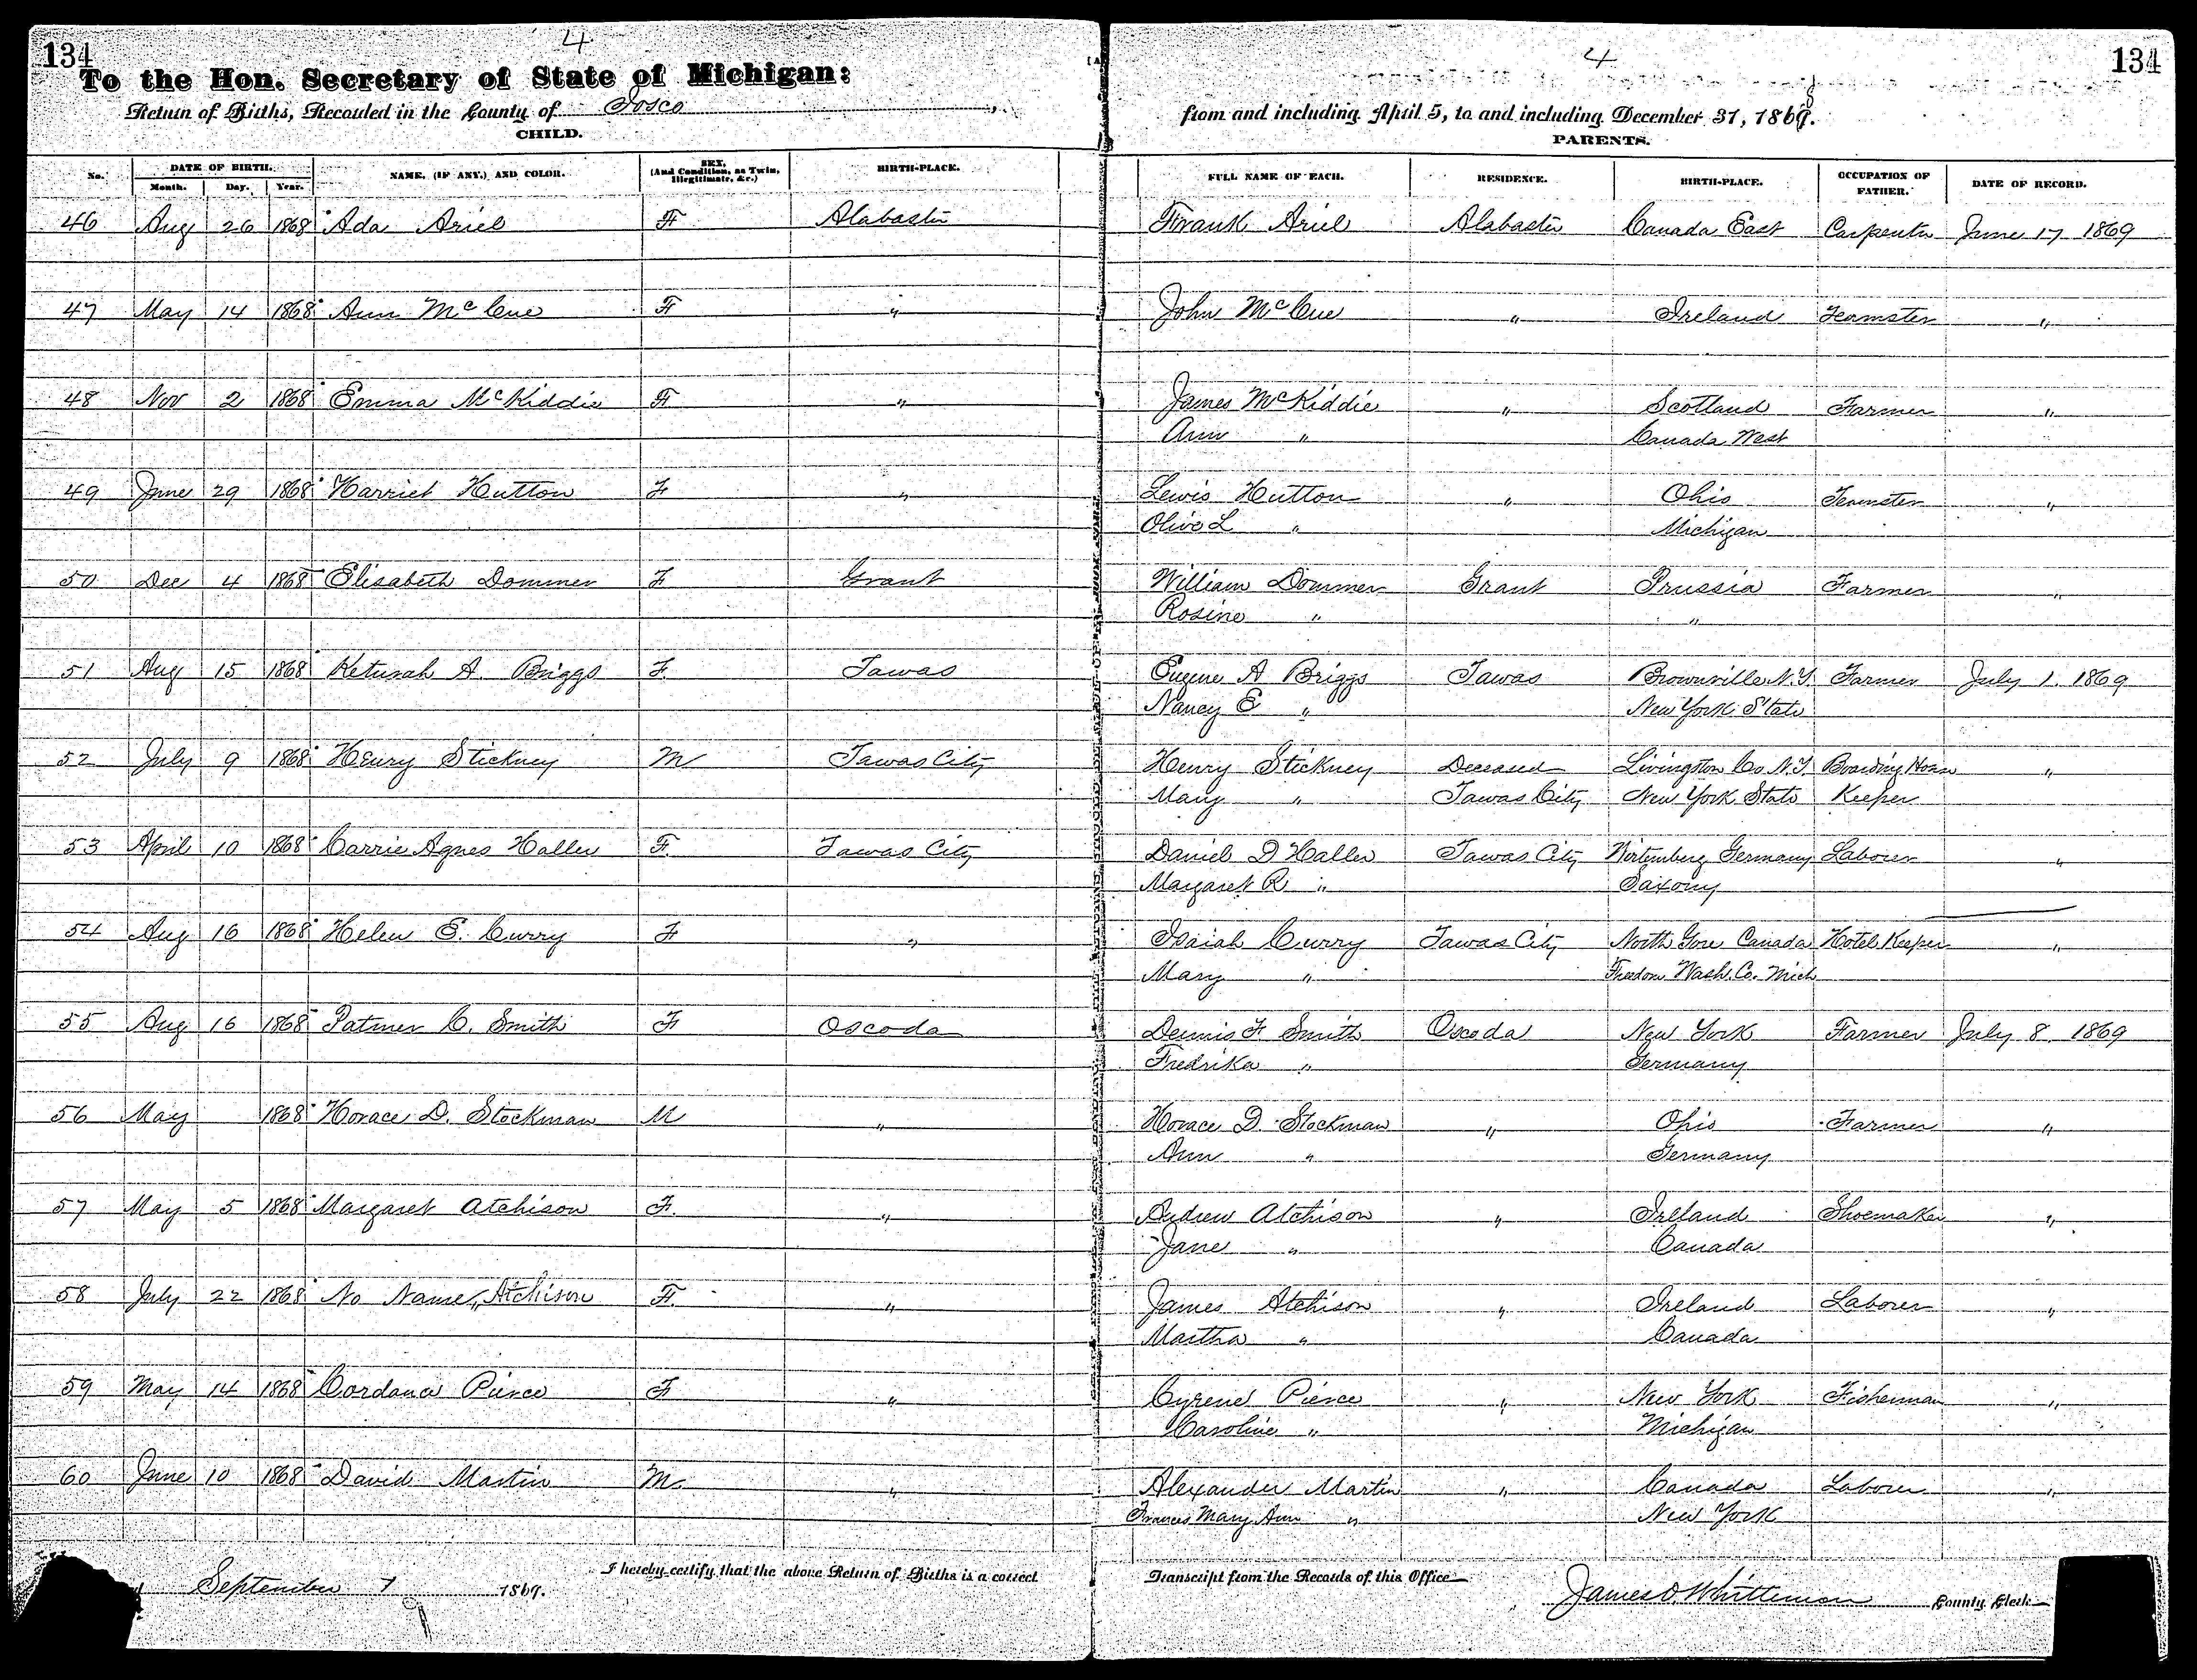 134 4 4 134
To the Hon. Secretary of State of Michigan:
Return of Births, Recorded in the County of Iosco from and including April 5, to and including December 31, 1868.
CHILD. PARENTS.
No. DATE OF BIRTH. NAME, (IF ANY,) AND COLOR. SEX, (And Condition, as Twin, Illegitimate, &c.) BIRTH-PLACE. FULL NAME OF EACH. RESIDENCE. BIRTH-PLACE. OCCUPATION OF FATHER. DATE OF RECORD.
Month. Day. Year.
46 Aug 26 1868 Ada Ariel F Alabaster Frank Ariel Alabaster Canada East Carpenter June 17 1869
47 May 14 1868 Ann McCue F " John McCue " Ireland Teamster "
48 Nov 2 1868 Emma McKiddie F " James McKiddie " Scotland Farmer "
Ann " Canada West
49 June 29 1868 Harriet Hutton F " Lewis Hutton " Ohio Teamster "
Olive L " Michigan
50 Dec 4 1868 Elisabeth Dommer F Grant William Dommer Grant Prussia Farmer "
Rosine " "
51 Aug 15 1868 Keturah A. Briggs F Tawas Eugene A Briggs Tawas Brownville N.Y. Farmer July 1. 1869
Nancy E " New York State
52 July 9 1868 Henry Stickney M Tawas City Henry Stickney Deceased Livingston Co N.Y. Boarding House "
Mary " Tawas City New York State Keeper
53 April 10 1868 Carrie Agnes Haller F. Tawas City Daniel D Haller Tawas City Wirtemburg Germany Laborer "
Margaret R " Saxony
54 Aug 16 1868 Helen E. Curry F " Isaiah Curry Tawas City North Gore Canada Hotel Keeper "
Mary " Freedom Wash. Co. Mich
55 Aug 16 1868 Patmer C. Smith F Oscoda Dennis F Smith Oscoda New York Farmer July 8. 1869
Fredrika " Germany
56 May 1868 Horace D. Stockman M " Horace D. Stockman " Ohio Farmer "
Ann " Germany
57 May 5 1868 Margaret Atchison F. " Andrew Atchison " Ireland Shoemaker "
Jane " Canada
58 July 22 1868 No Name, Atchison F. " James Atchison " Ireland Laborer "
Martha " Canada
59 May 14 1868 Cordana Pierce F " Cyrene Pierce " New York Fisherman "
Caroline " Michigan
60 June 10 1868 David Martin M. " Alexander Martin " Canada Laborer "
Frances Mary Ann " New York
September 7 1869. I hereby certify that the above Return of Births is a correct Transcript from the Records of this Office James O. Whittemore County Clerk